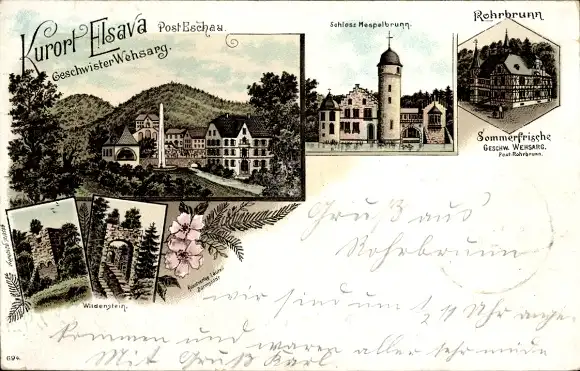 Kurort Elsava Post Eschau.
Geschwister Wehsarg.
Schloss Mespelbrunn.
Rohrbrunn
Sommerfrische
GESCHW. WEHSARG.
Post Rohrbrunn.
Wildenstein.
694.
Gruß aus
Rohrbrunn
wir sind um 1/2 11 Uhr ange-
kommen und waren aller sehr müde
Mit Gruß Karl